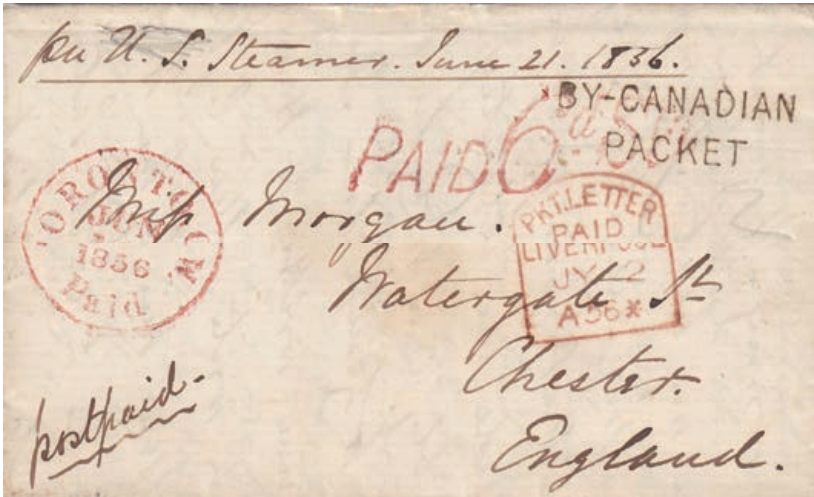 per U. S. Steamer. June 21. 1856.
BY-CANADIAN
PACKET
PAID 6d Stg
TORONTO. C.W.
JUN
1856
Paid
Miss Morgan.
PKT. LETTER
PAID
LIVERPOOL
JY 2
A56*
Watergate St
Chester.
England.
postpaid.